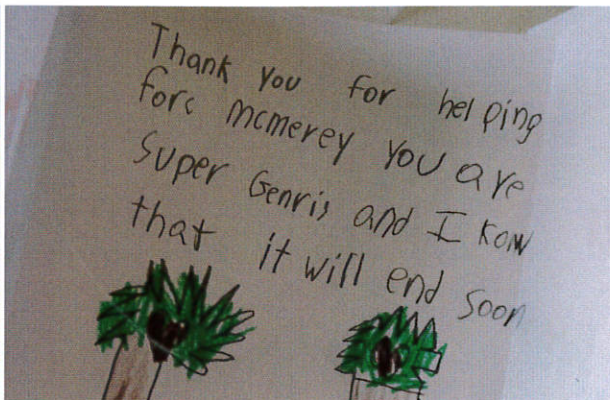 Thank you for helping
forc mcmerey you are
Super Genris and I kow
that it will end soon